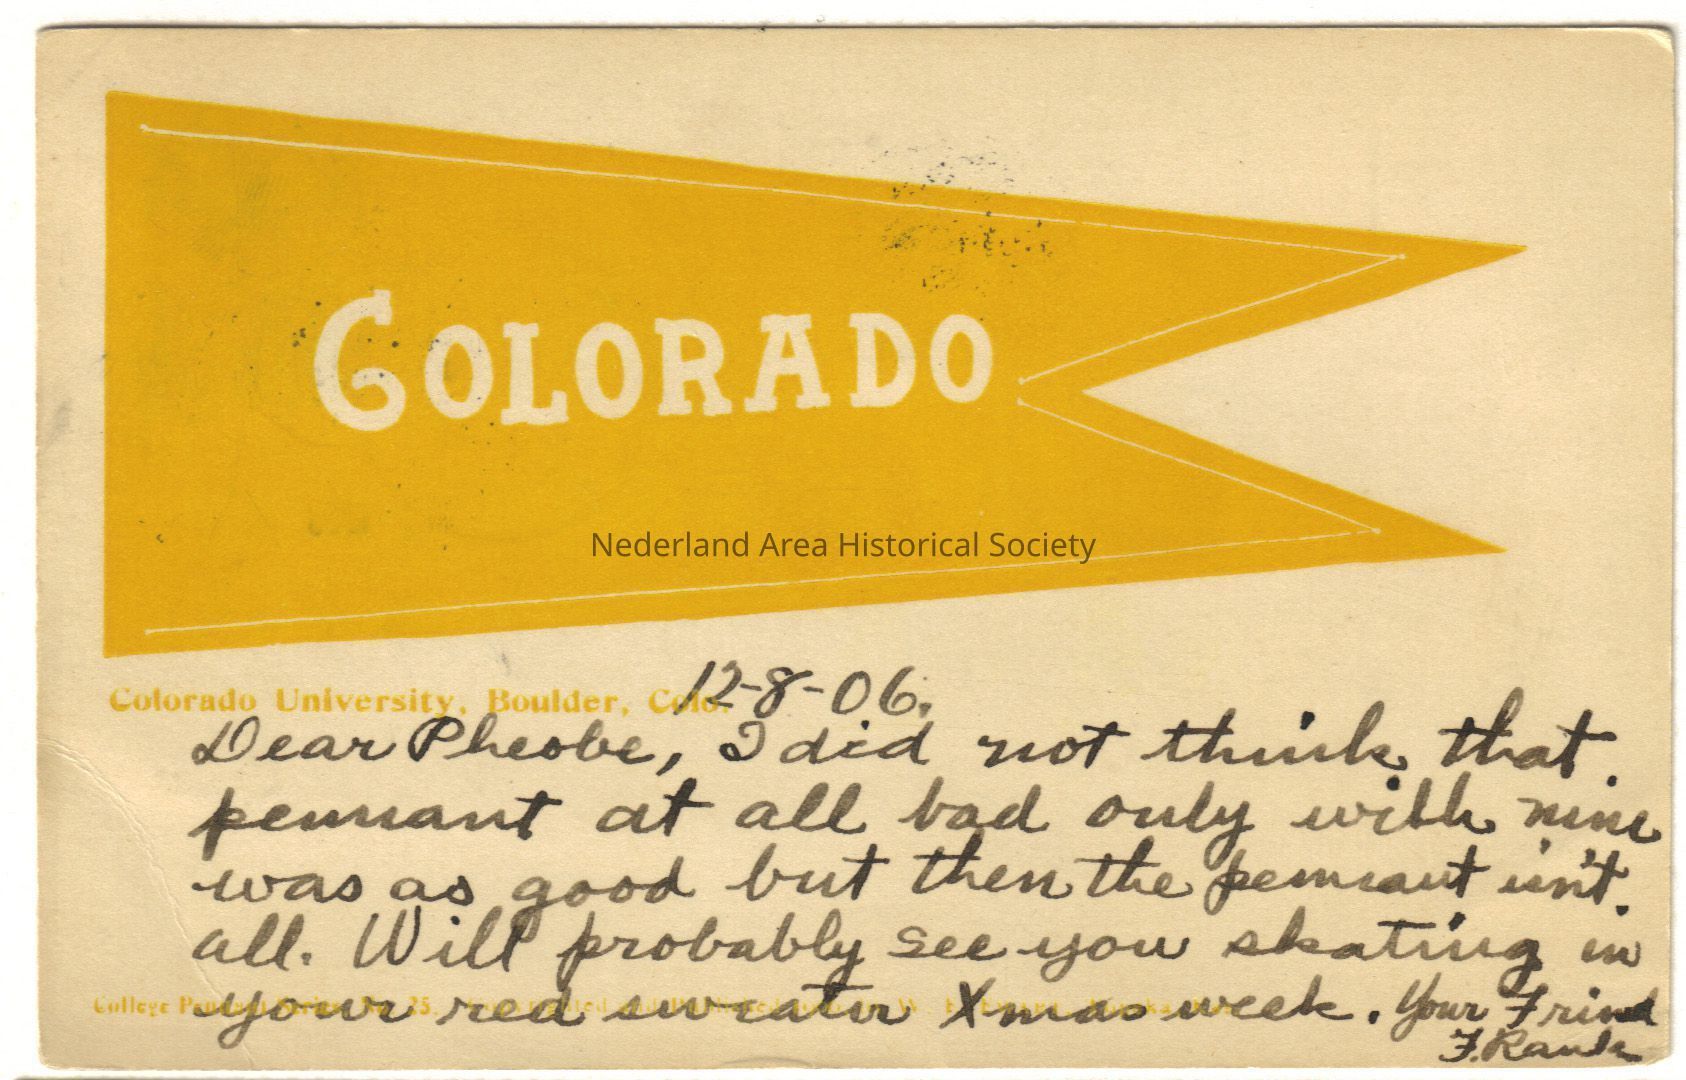 COLORADO
Nederland Area Historical Society
Colorado University, Boulder, Colo.
12-8-06.
Dear Pheobe, I did not think that
pennant at all bad only wish mine
was as good but then the pennant isn't
all. Will probably see you skating in
your red sweater Xmas week. Your Friend
College Pennant Series No. 25.
F. Rank